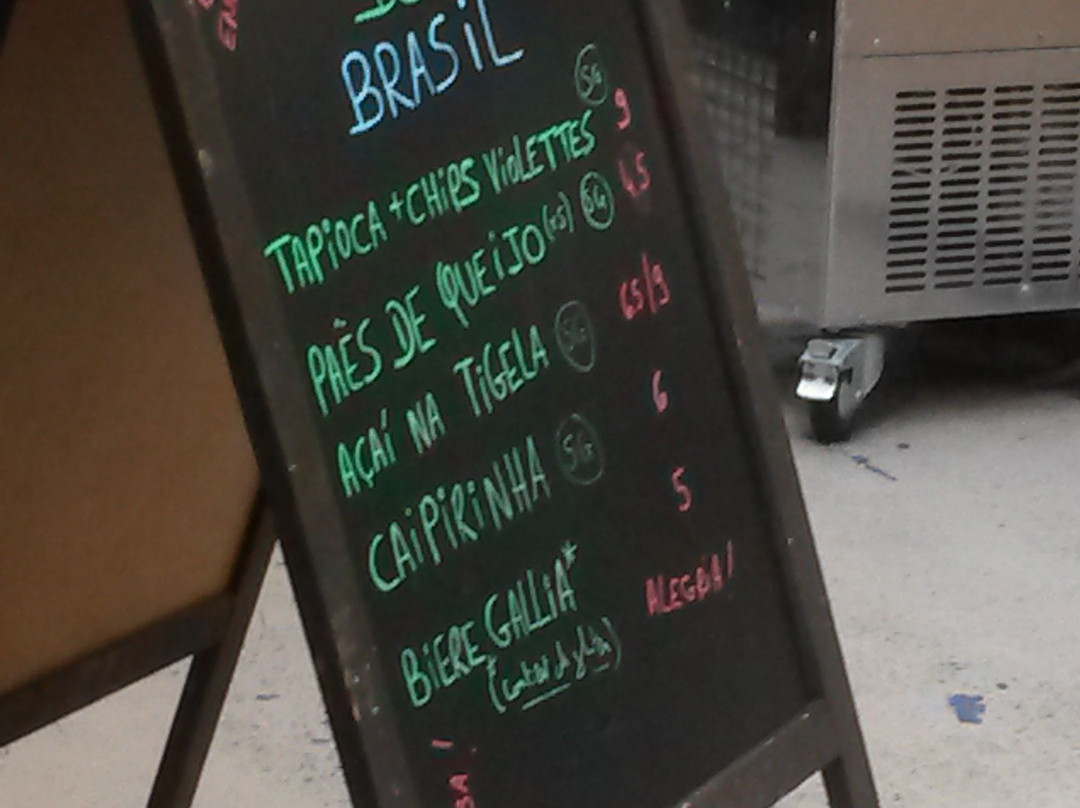 BRASiL
TAPiOCA + CHiPS ViOLETTES SG 9
PAÊS DE QUEiJO (x5) SG 4,5
AÇAÍ NA TiGELA SG 6,5/9
CAiPiRiNHA SG 6
BiERE GALLiA* 5
(contient du gluten)
ALEGRiA!